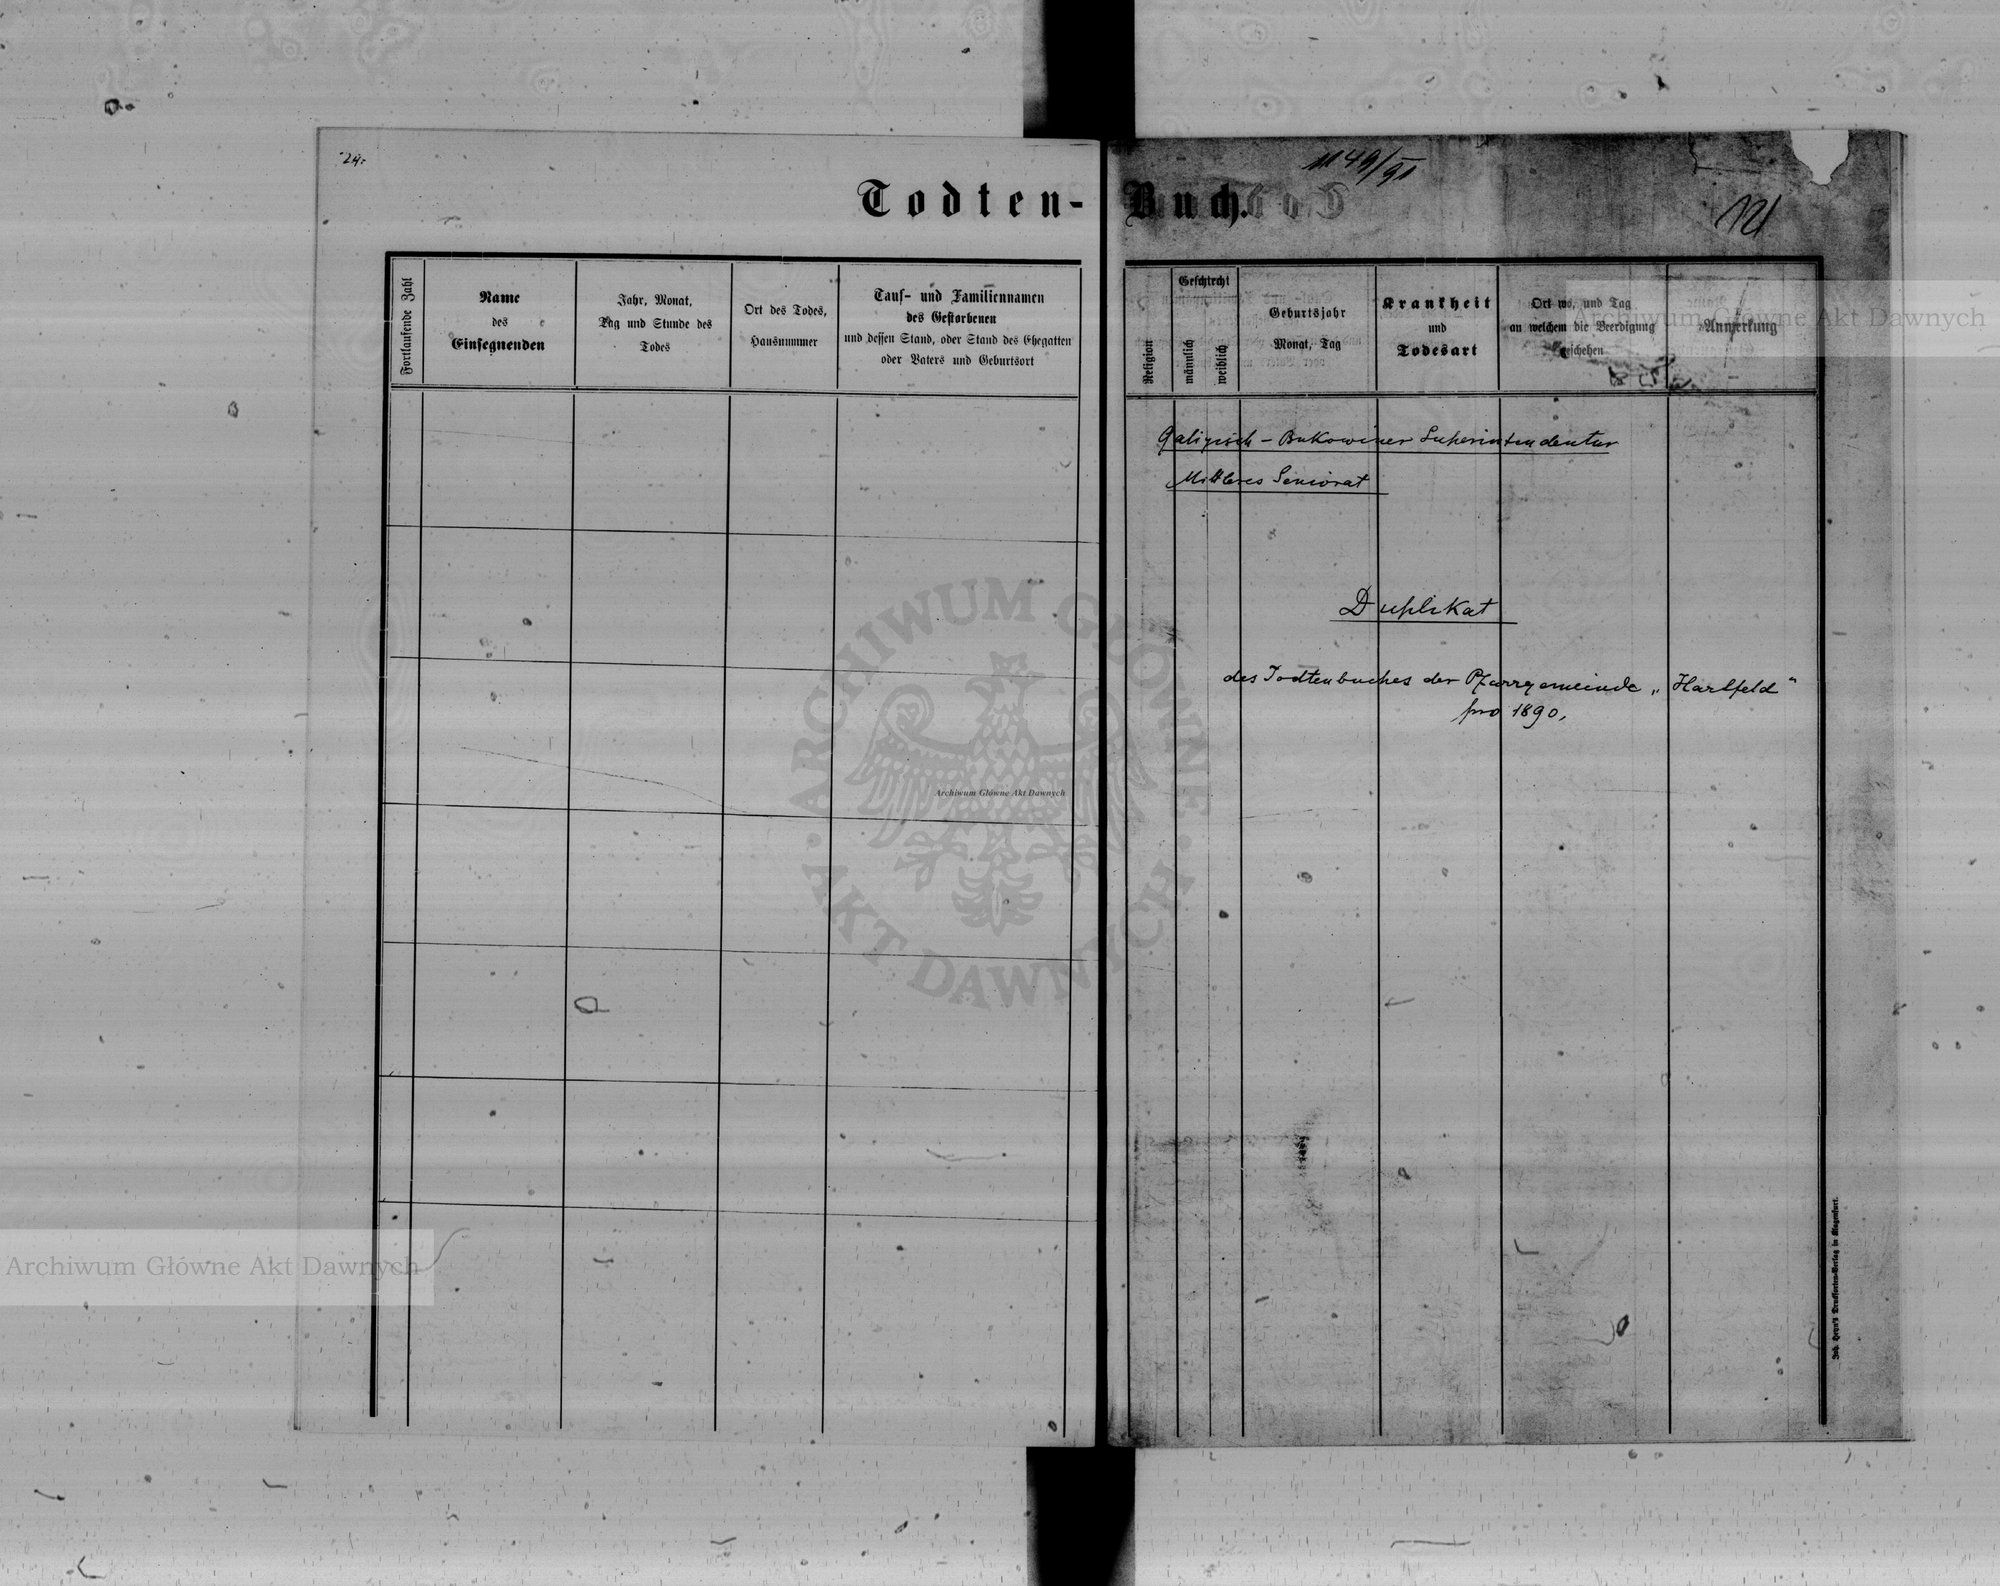 24.
1149/91
121
Todten-Buch.
Fortlaufende Zahl
Name
des
Einsegnenden
Jahr, Monat,
Tag und Stunde des
Todes
Ort des Todes,
Hausnummer
Tauf- und Familiennamen
des Gestorbenen
und dessen Stand, oder Stand des Ehegatten
oder Vaters und Geburtsort
Religion
Geschlecht
männlich
weiblich
Geburtsjahr
Monat, Tag
Krankheit
und
Todesart
Ort wo, und Tag
an welchem die Beerdigung
geschehen
Anmerkung
Galizisch-Bukowiner Superintendentur
Mittleres Seniorat
Duplikat
des Todtenbuches der Pfarrgemeinde „Hartfeld"
pro 1890.
Joh. Heyn's Drucksorten-Verlag in Klagenfurt.
Archiwum Główne Akt Dawnych
ARCHIWUM GŁÓWNE
AKT DAWNYCH
Archiwum Główne Akt Dawnych
Archiwum Główne Akt Dawnych